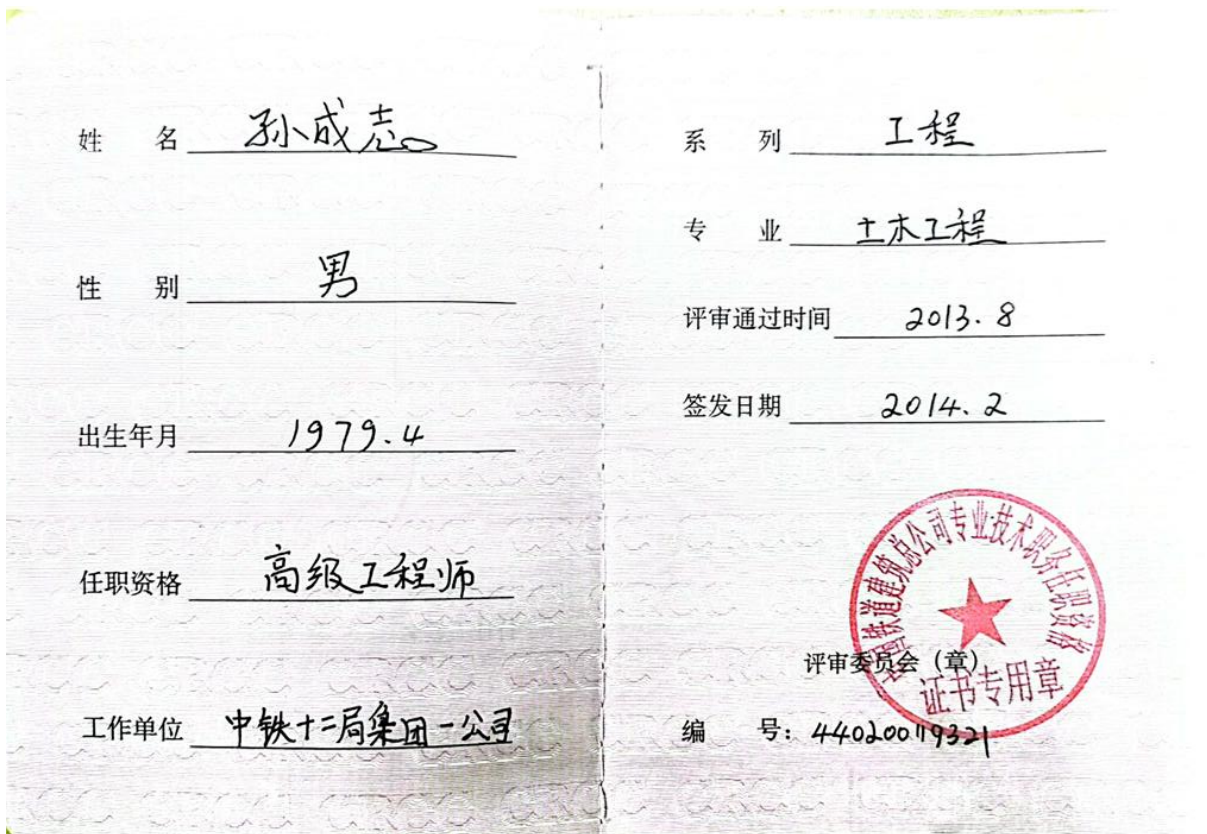 姓 名 孙成志
性 别 男
出生年月 1979.4
任职资格 高级工程师
工作单位 中铁十二局集团一公司
系 列 工程
专 业 土木工程
评审通过时间 2013.8
签发日期 2014.2
中国铁道建筑总公司专业技术职务任职资格
评审委员会（章）
证书专用章
编 号：44020019321